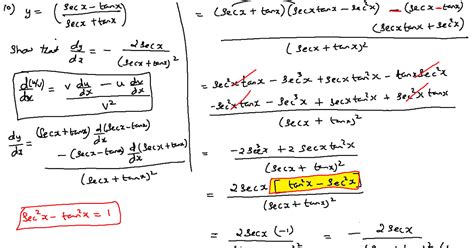 10) y = (secx - tanx / secx + tanx)
Show that dy/dx = - 2secx / (secx + tanx)²
d(u/v)/dx = (v du/dx - u dv/dx) / v²
dy/dx = (secx+tanx) d/dx (secx-tanx)
- (secx-tanx) d/dx (secx+tanx)
/ (secx + tanx)²
sec²x - tan²x = 1
= (secx + tanx)(secxtanx - sec²x) - (secx - tanx)
(secxtanx + sec²x)
/ (secx + tanx)²
= sec²x tanx - sec³x + secx tan²x - tanx sec²x
- sec²x tanx - sec³x + secx tan²x + sec²x tanx
/ (secx + tanx)²
= -2sec³x + 2 secx tan²x / (secx + tanx)²
= 2secx [tan²x - sec²x] / (secx + tanx)²
= 2secx (-1) = - 2secx